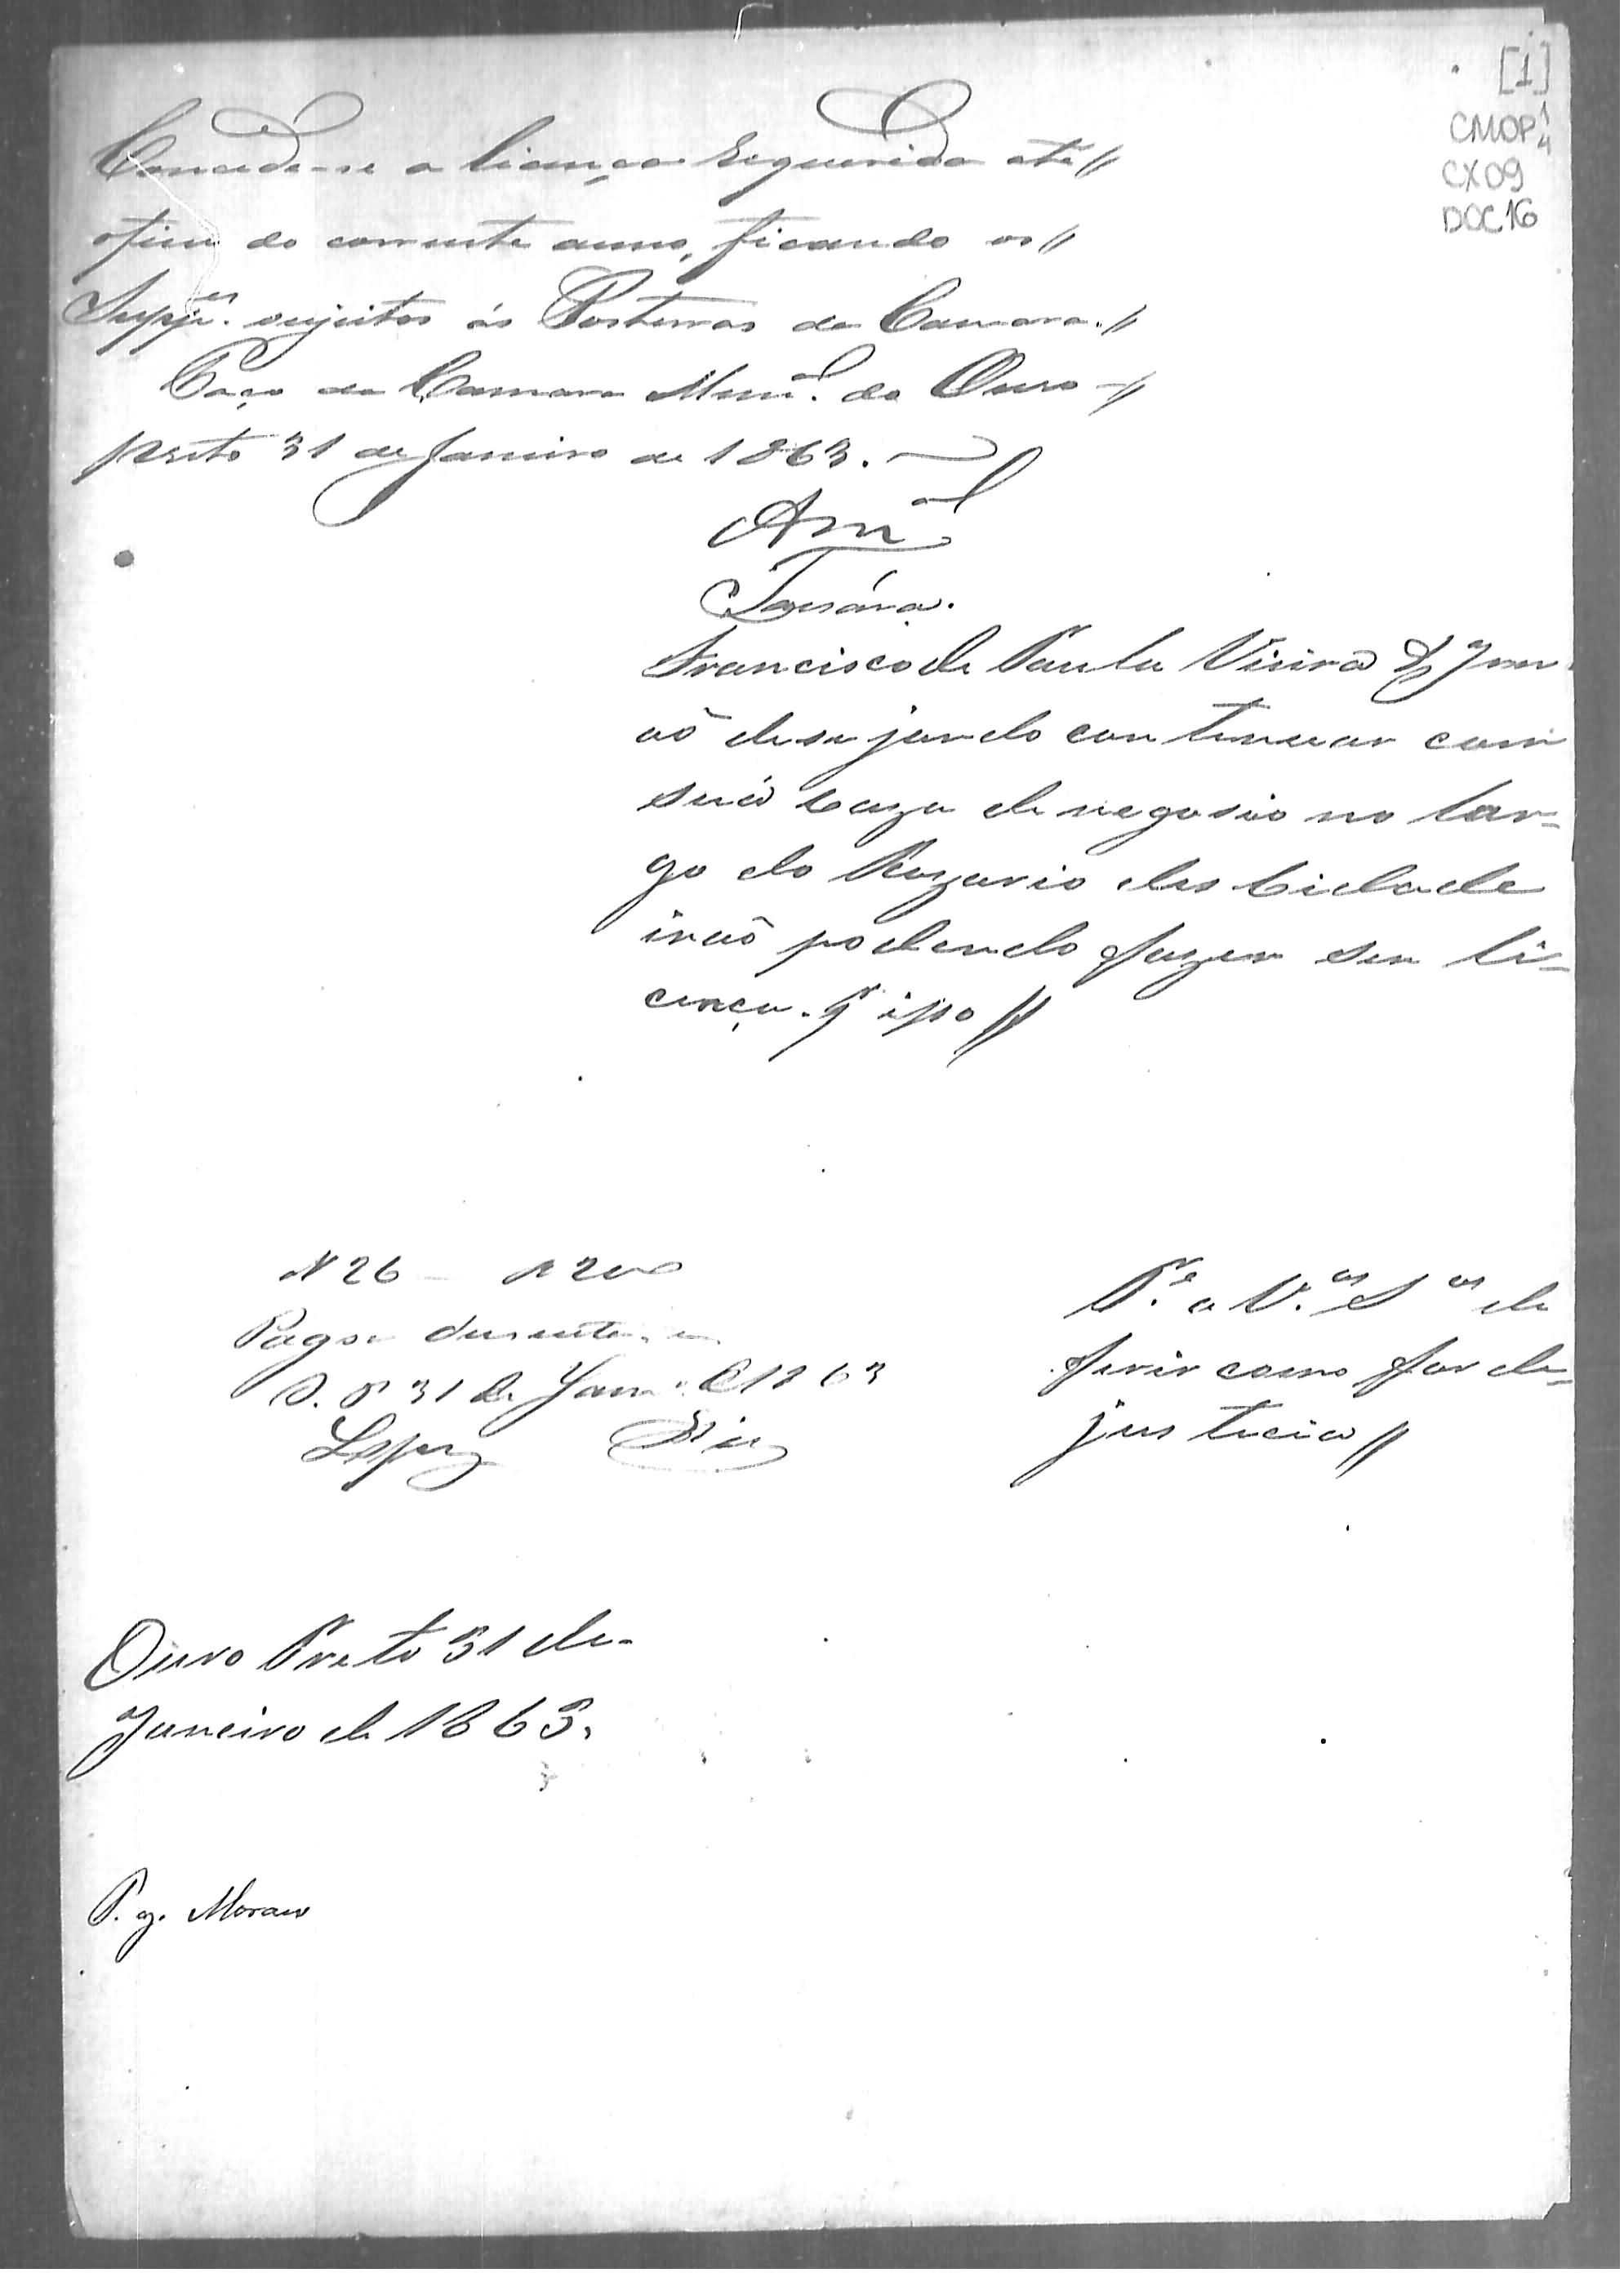 [1]
CMOP 1/4
CX 09
DOC 16
Concede-se a licença requerida até //
o fim do corrente anno, ficando os //
Supp.es sujeitos ás Posturas da Camara. //
Paço da Camara Mun.al do Ouro -//
preto 31 de Janeiro de 1863.
Am.al
Francisco de Paula Vieira & Irm
aõ desejando continuar com
sua caza de negosio no lar=
go do Rozario desta Cidade
naõ podendo fazer sem li=
cença. P.r isso //
P.r e a V.as S.as de
ferir como for de
justicia //
N 26 - R 200
Pagou duzentos r.
O. P. 31 de Jan.o de 1863
Lopes
Ouro Preto 31 de
Janeiro de 1863.
P. g. Moraes